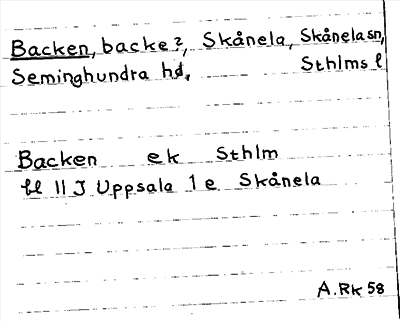 Backen, backe?, Skånela, Skånela sn,
Seminghundra hd, Sthlms l
Backen ek Sthlm
bl 11 J Uppsala 1 e Skånela
A. Rk 58